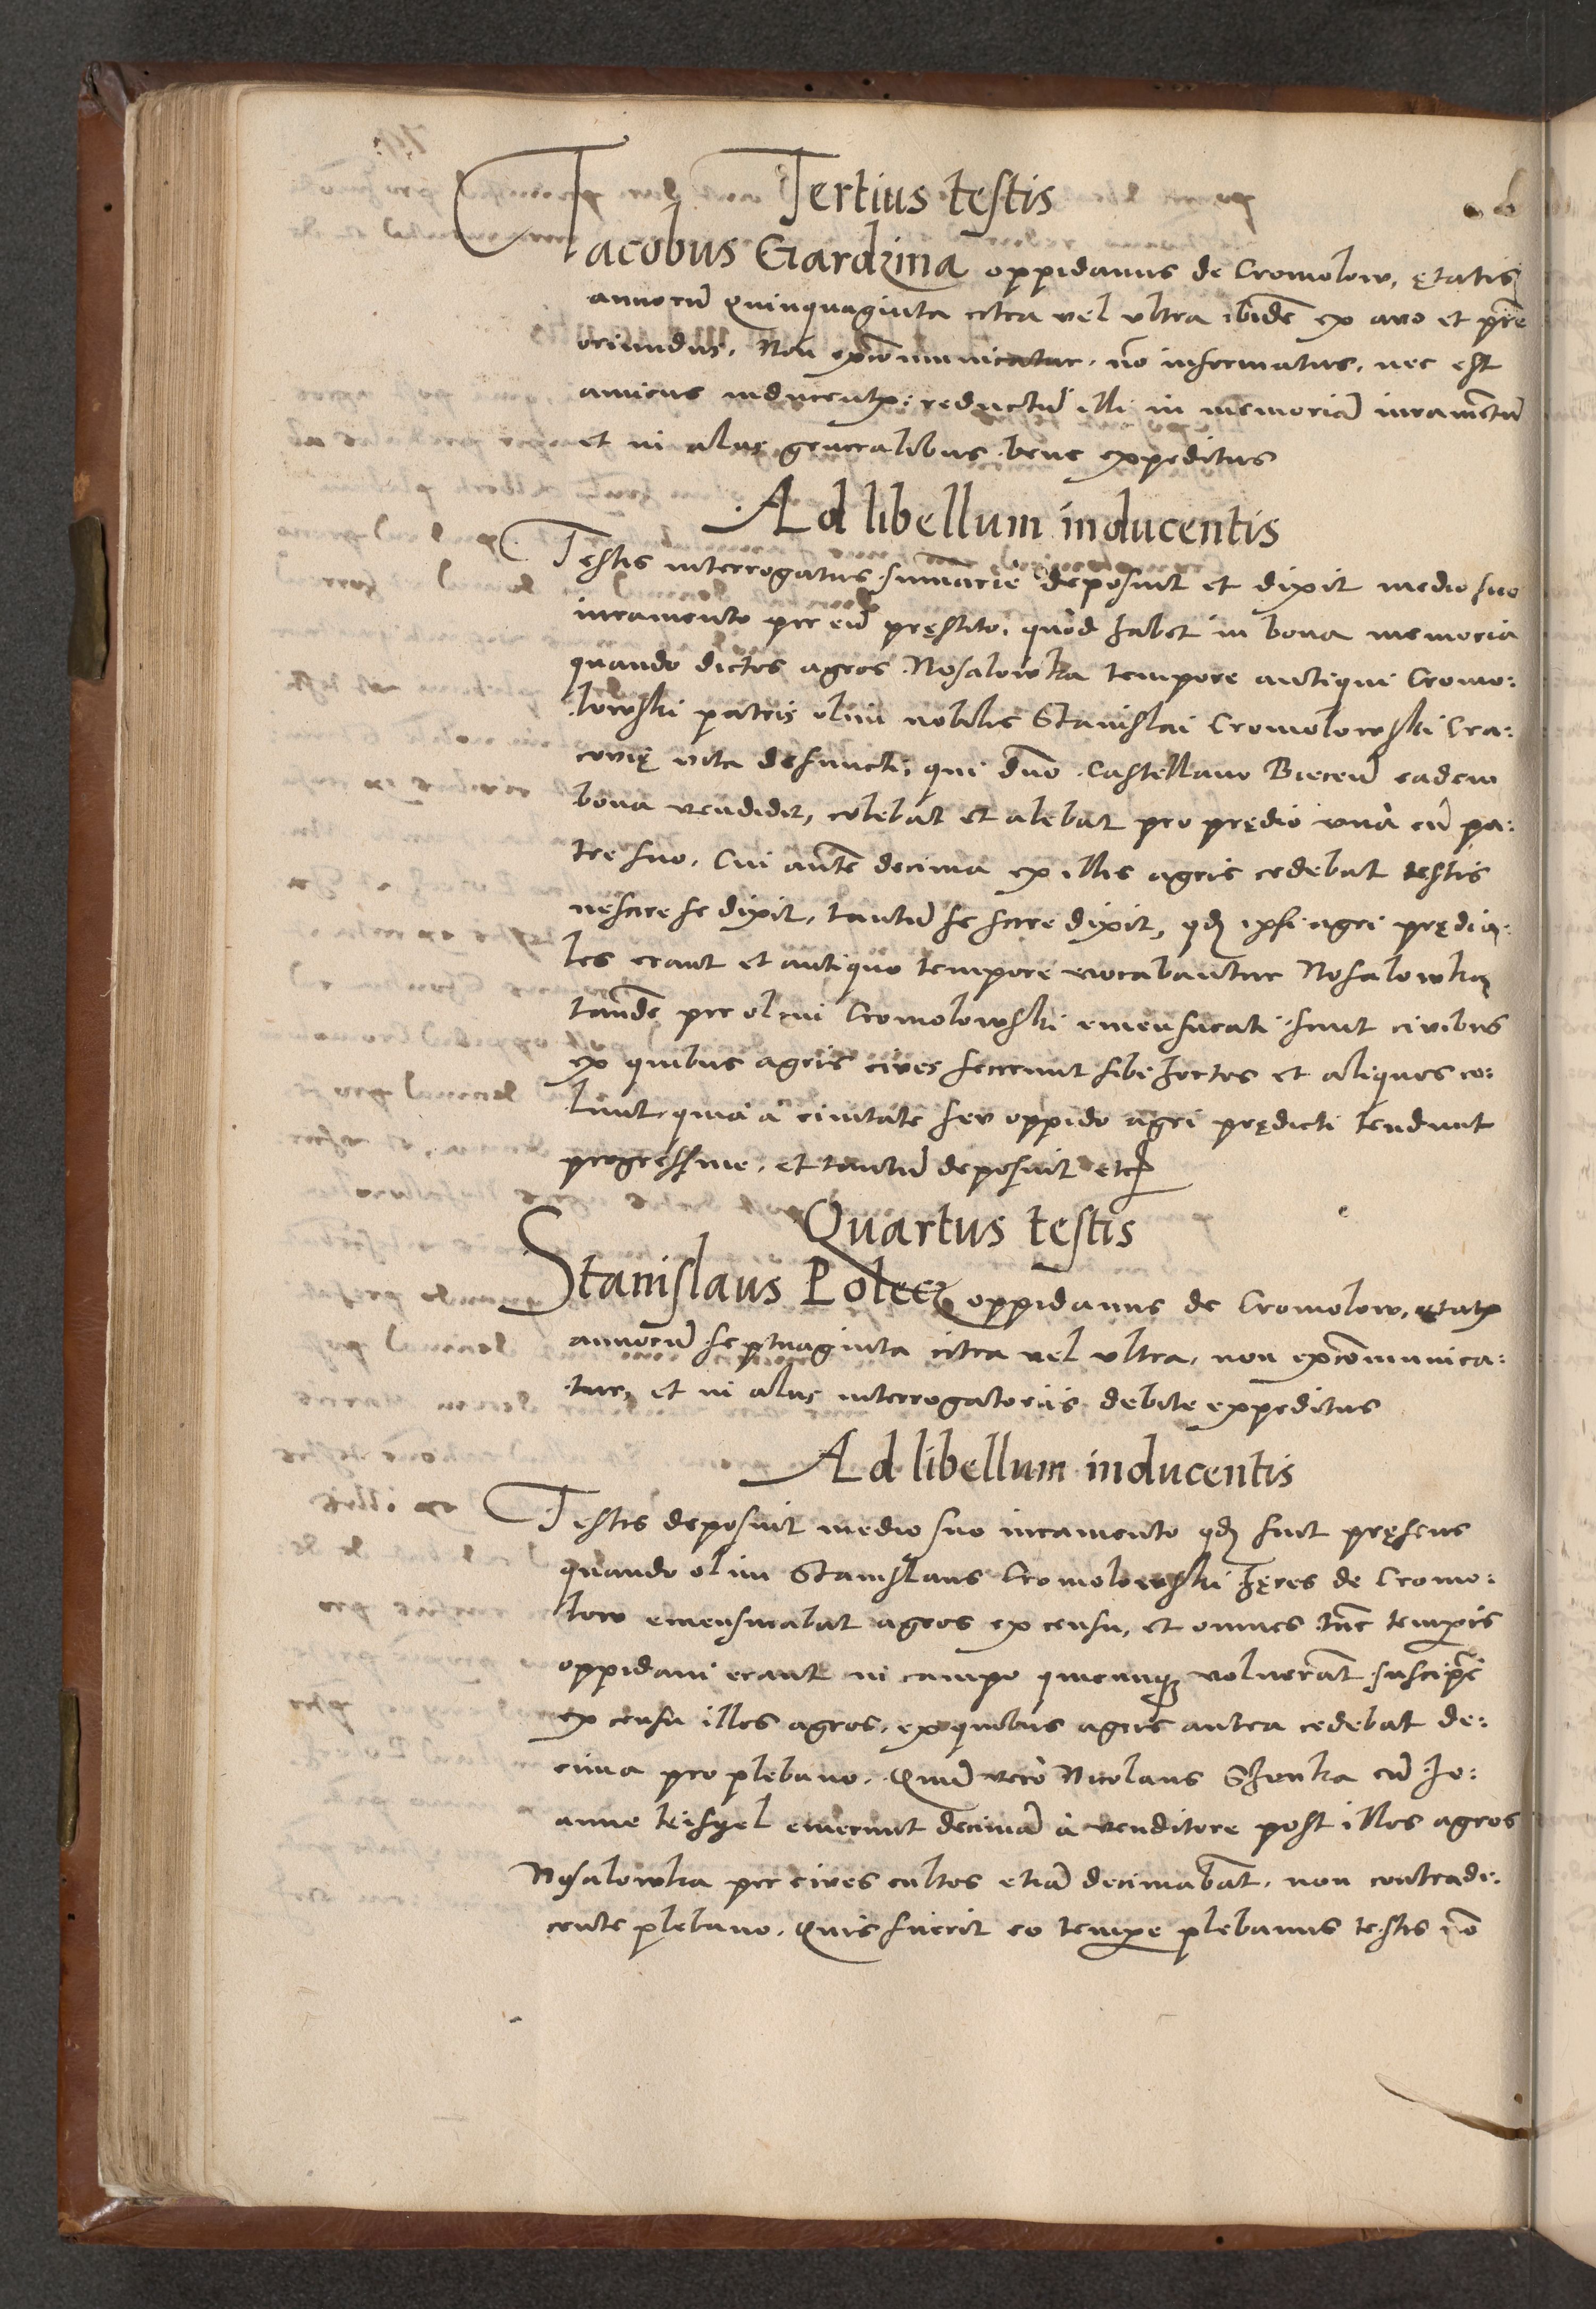 Tertius testis
Iacobus Gardzina oppidanus de Cromolow, ętatis
annorũ Quinquaginta citra vel vltra ibidẽ ex auo et prẽ
oriundus. Non excõmunicatur. nõ informatus, nec est
amicus inducentis: reductũ illi in memoriã iuramẽtũ
et in alijs generalibus bene expeditus
Ad libellum inducentis
Testis interrogatus summarie deposuit et dixit medio suo
iuramento per eũ pręstito, quòd habet in bona memoria
quando dictos agros Nosalowka tempore antiqui Cromo:
lowski patris olim nobilis Stanislai Cromolowski Cra:
couię vita defuncti, qui dño Castellano Biecen̄ eadem
bona vendidit, colebat et alebat pro prędio vnà cũ pa:
tre suo. Cui autẽ decima ex illis agris cedebat testis
nescire se dixit, tantũ se scire dixit, qđ ipsi agri prędia:
les erant et antiquo tempore vocabantur Nosalowka
tandẽ per olim Cromolowski emensurati sunt ciuibus
ex quibus agris ciues fecerunt sibi hortos et aliquos co:
lunt quia à ciuitate seu oppido agri prędicti tendunt
progressiue. et tantũ deposuit etc
Quartus testis
Stanislaus Polecz oppidanus de Cromolow, ętatis
annorũ septuaginta citra vel vltra, non excõmunica:
tur, et in alijs interrogatorijs debite expeditus
Ad libellum inducentis
Testis deposuit medio suo iuramento qđ fuit pręsens
quando olim Stanislaus Cromolowski hęres de Cromo:
low emensurabat agros ex censu, et omnes tũc temporis
oppidani erant in campo quicunqȝ voluerãt suscipẽ
ex censu illos agros, ex quibus agris antea cedebat de:
cima pro plebano. Quiã verò Nicolaus Shonka cũ Jo:
anne Keisgel emerunt decimã à venditore post illos agros
Nosalowka per ciues cultos etiã decimabãt, non contradi:
cente plebano. Quis fuerit eo tempore plebanus testis nõ